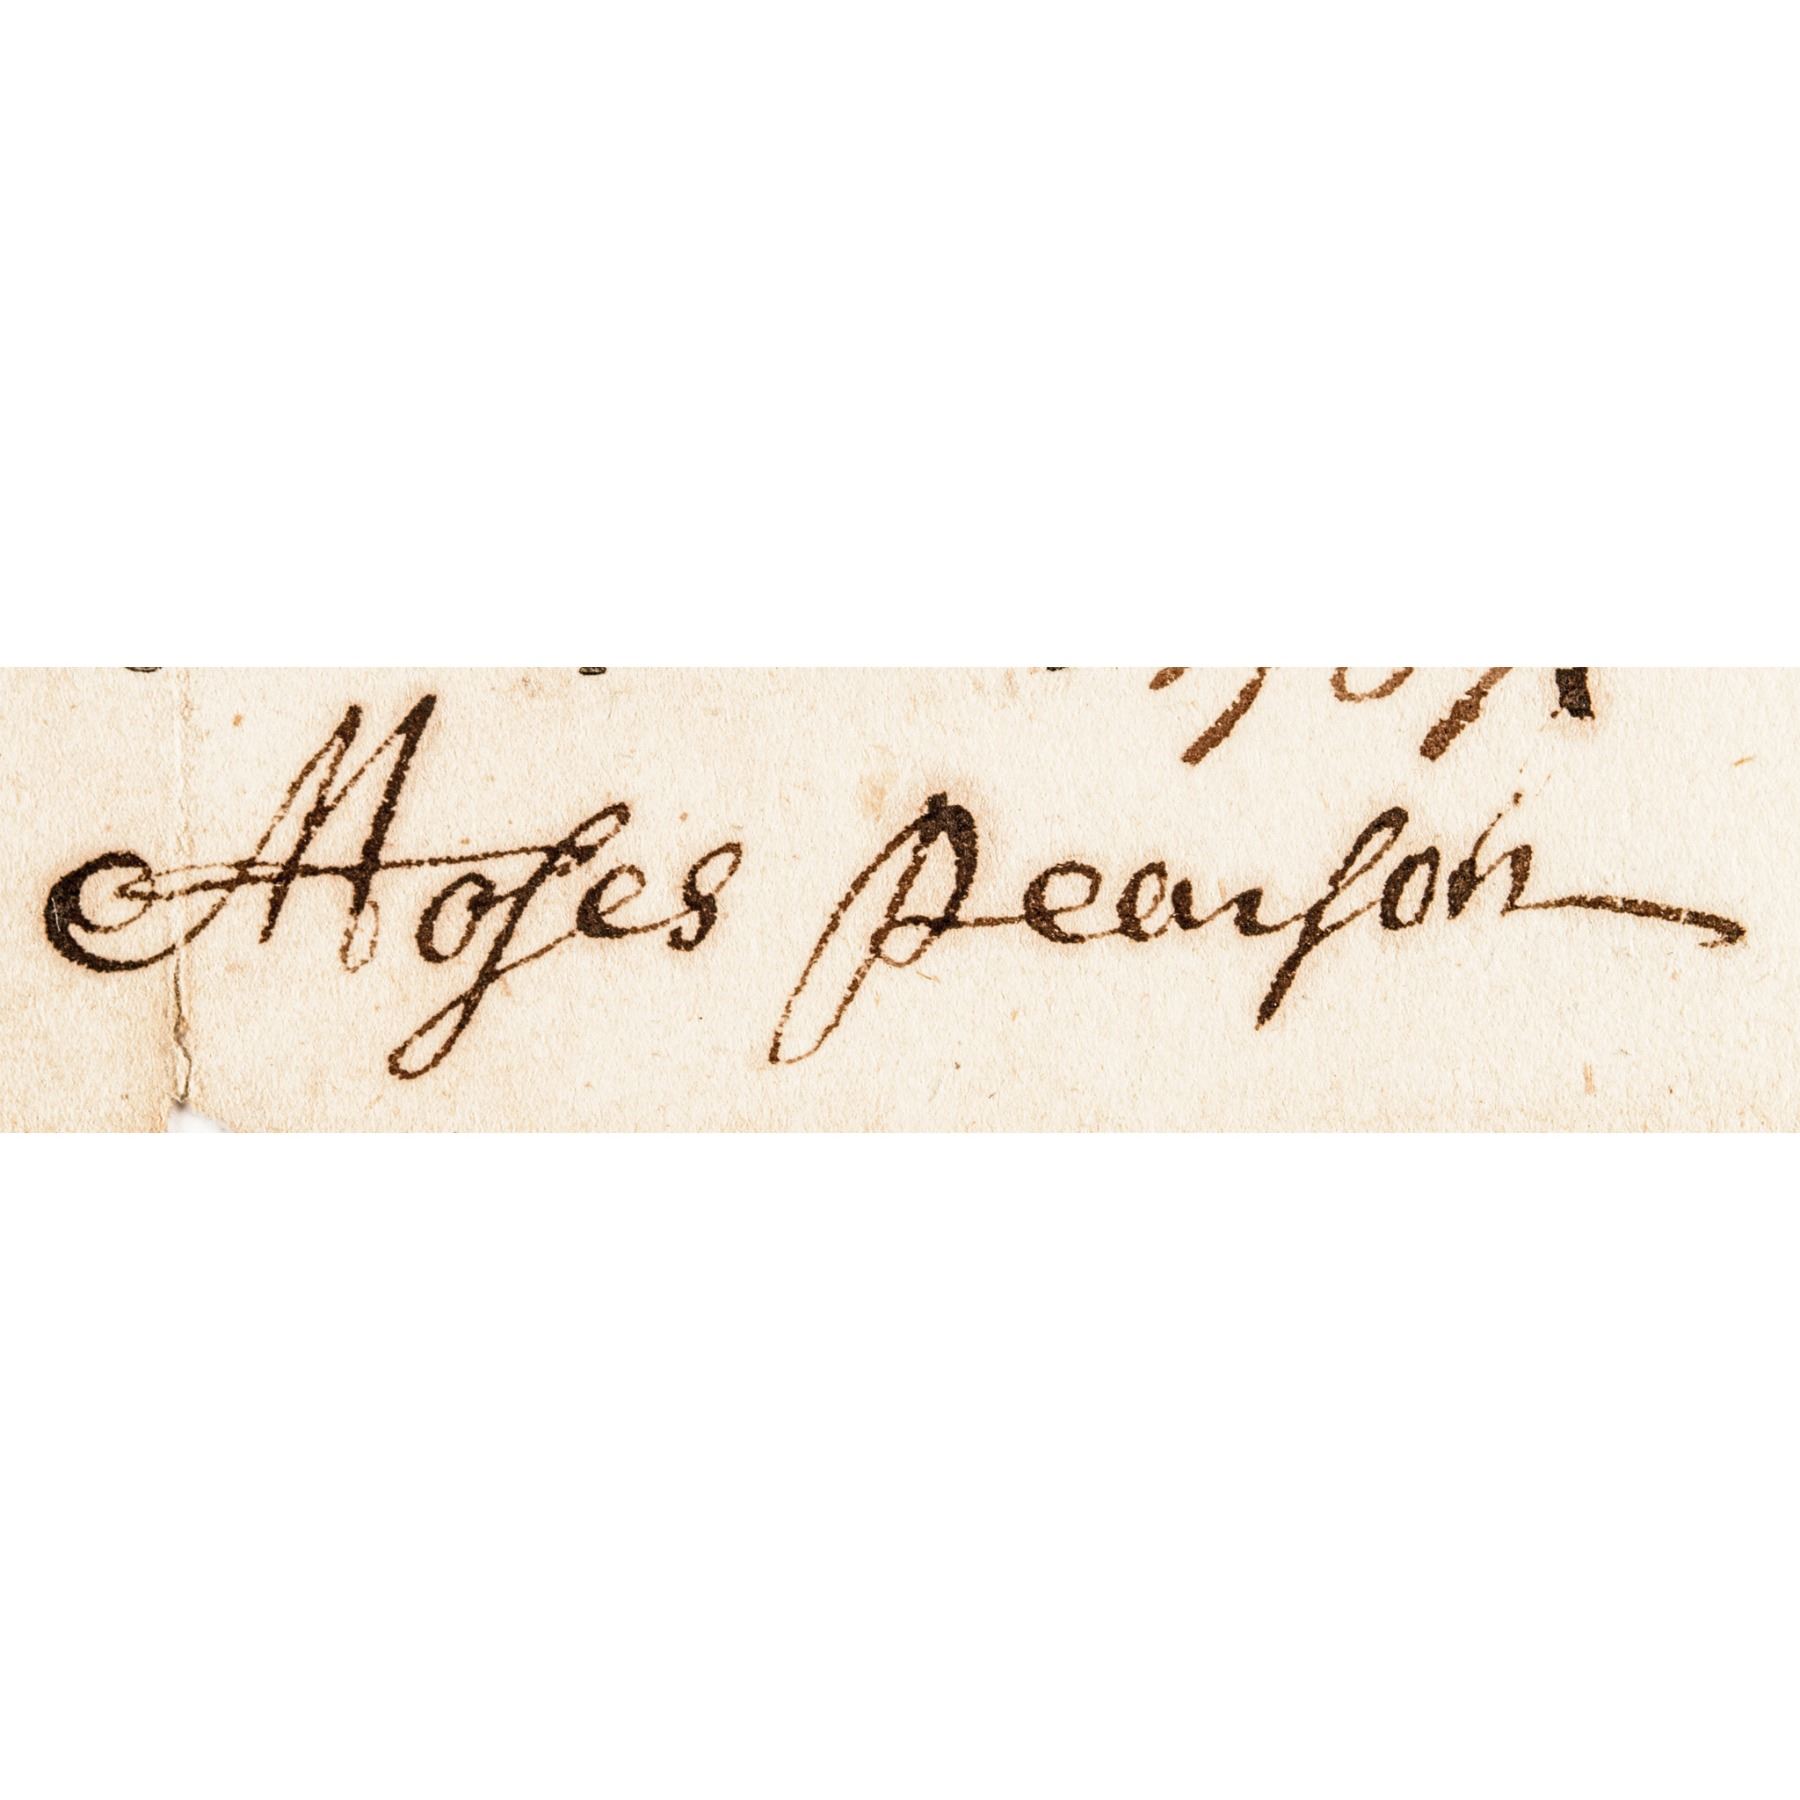 Moses Pearson